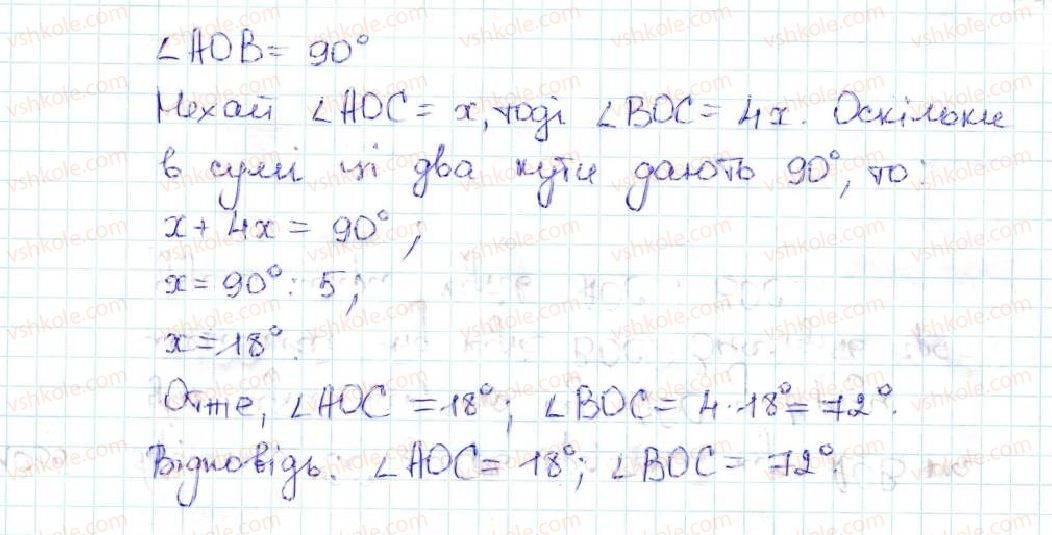 ∠AOB = 90°
Нехай ∠AOC = x, тоді ∠BOC = 4x. Оскільки
в сумі ці два кути дають 90°, то:
x + 4x = 90°;
x = 90° : 5;
x = 18°.
Отже, ∠AOC = 18°; ∠BOC = 4 · 18° = 72°.
Відповідь: ∠AOC = 18°; ∠BOC = 72°.
vshkole.com